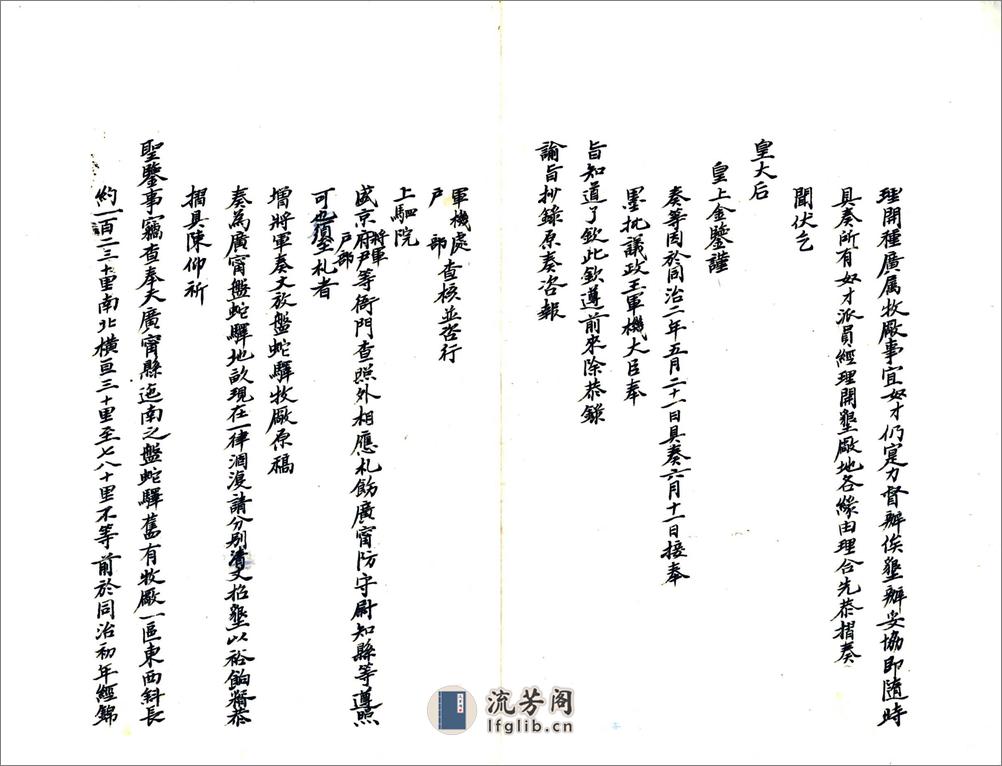 理開種廣属牧廠事宜奴才仍寔力督辦俟墾辦妥協即隨時
具奏所有奴才派員經理開墾廠地各緣由理合先恭摺奏
聞伏乞
皇太后
皇上金鑒謹
奏等因於同治二年五月二十一日具奏六月十一日接奉
墨批議政王軍機大臣奉
旨知道了欽此欽遵前來除恭錄
諭旨抄錄原奏咨報
軍機處
户部查核並咨行
上駟院
盛京將軍户部府尹等衙門查照外相應札飭廣甯防守尉知縣等遵照
可也須至札者
增將軍奏丈放盤蛇驛牧廠原稿
奏為廣甯盤蛇驛地畝現在一律涸復請分别清丈招墾以裕餉需恭
摺具陳仰祈
聖鑒事竊查奉天廣甯縣迤南之盤蛇驛舊有牧廠一區東西斜長
約一百二三十里南北橫亘三十里至七八十里不等前於同治初年經錦
流芳阁
lfglib.cn